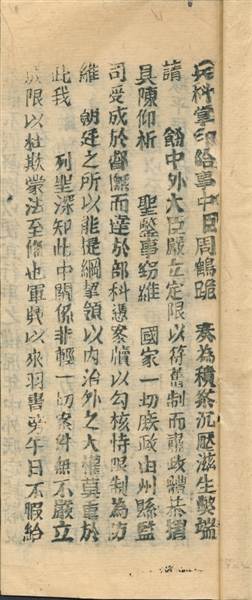 兵科掌印給事中臣周鶴跪 奏為積案沉壓滋生獘端
請 飭中外大臣嚴立定限以符舊制而肅政體恭摺
具陳仰祈 聖鑒事竊維 國家一切庶政由州縣監
司受成於督撫而達於部科憑案牘以勾核恃限制為防
維 朝廷之所以能提綱挈領以內治外之大權莫重於
此我 列聖深知此中關係非輕一切案件無不嚴立
限以杜欺蒙法至備也軍興以來羽書旁午日不暇給